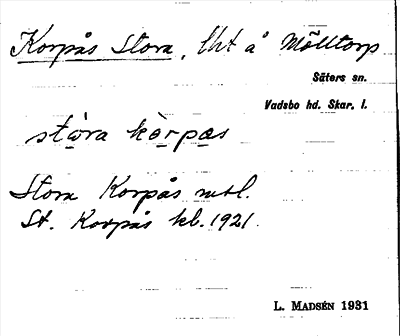 Korpås Stora, lht å Mölltorp
Säters sn.
Vadsbo hd. Skar. l.
stòra kòrpas
Stora Korpås mtl.
St. Korpås kb. 1921.
L. MADSÉN 1931